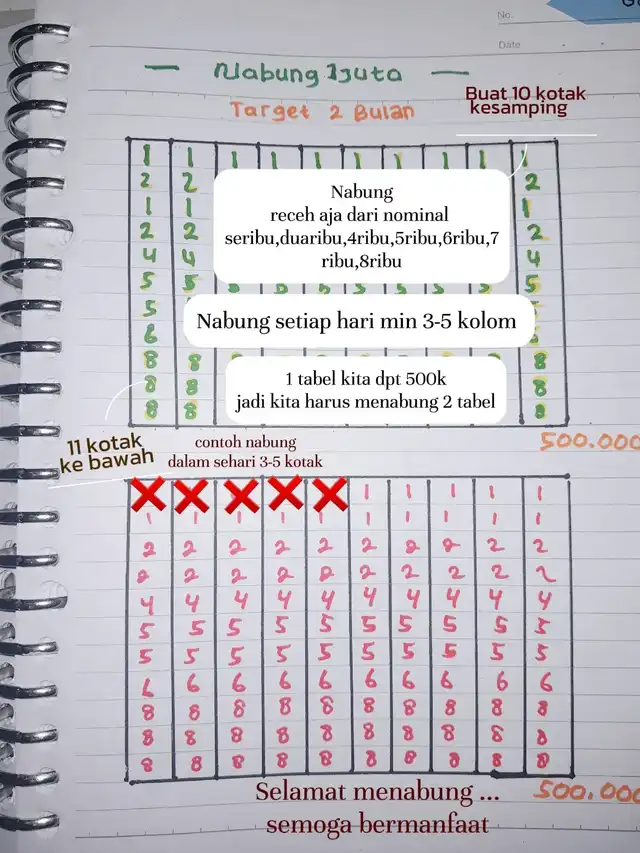 No.
Date
Nabung 1juta
Target 2 Bulan
Buat 10 kotak
kesamping
1 1 1 1 1 1 1 1 1 1
2 2 2
1 1 1
2 2 2
4 4 4
5 5 5
5
6
8 8 8
8 8 8
8 8 8
Nabung
receh aja dari nominal
seribu,duaribu,4ribu,5ribu,6ribu,7
ribu,8ribu
Nabung setiap hari min 3-5 kolom
1 tabel kita dpt 500k
jadi kita harus menabung 2 tabel
500.000
11 kotak
ke bawah
contoh nabung
dalam sehari 3-5 kotak
1 1 1 1 1
1 1 1 1 1 1 1 1 1 1
2 2 2 2 2 2 2 2 2 2
2 2 2 2 2 2 2 2 2 2
4 4 4 4 4 4 4 4 4 4
5 5 5 5 5 5 5 5 5 5
5 5 5 5 5 5 5 5 5 5
6 6 6 6 6 6 6 6 6 6
8 8 8 8 8 8 8 8 8 8
8 8 8 8 8 8 8 8 8 8
8 8 8 8 8 8 8 8 8 8
500.000
Selamat menabung ...
semoga bermanfaat